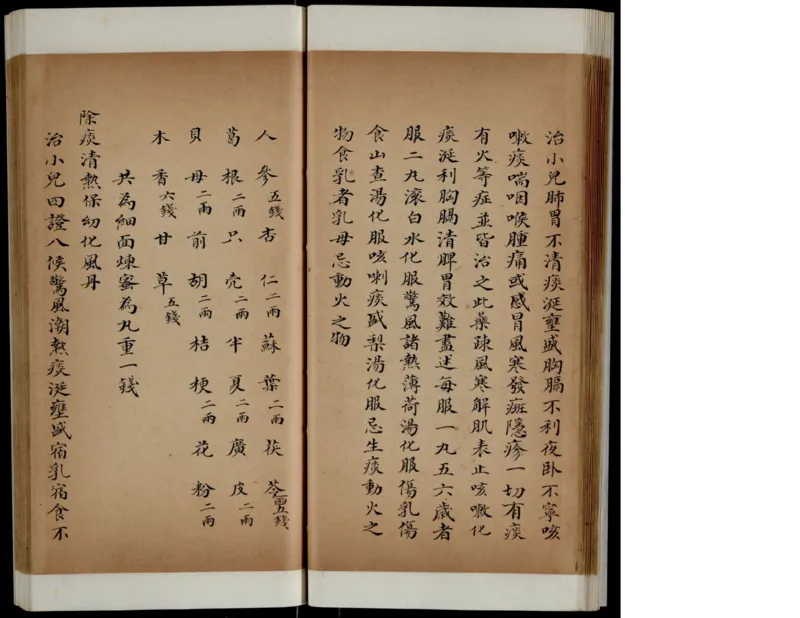 治小兒肺胃不清痰涎壅盛胸膈不利夜卧不寧咳
嗽痰喘咽喉腫痛或感冒風寒發癍隱疹一切有痰
有火等症並皆治之此藥疎風寒解肌表止咳嗽化
痰涎利胸膈清脾胃效難盡述每服一丸五六歲者
服二丸滾白水化服驚風諸熱薄荷湯化服傷乳傷
食山查湯化服咳喇痰盛梨湯化服忌生痰動火之
物食乳者乳母忌動火之物
人參五錢杏仁二兩蘇葉二兩茯苓一兩五錢
葛根二兩只壳二兩半夏二兩廣皮二兩
貝母二兩前胡二兩桔梗二兩花粉二兩
木香六錢甘草五錢
共為細面煉蜜為丸重一錢
除痰清熱保幼化風丹
治小兒四證八候驚風潮熱痰涎壅盛宿乳宿食不